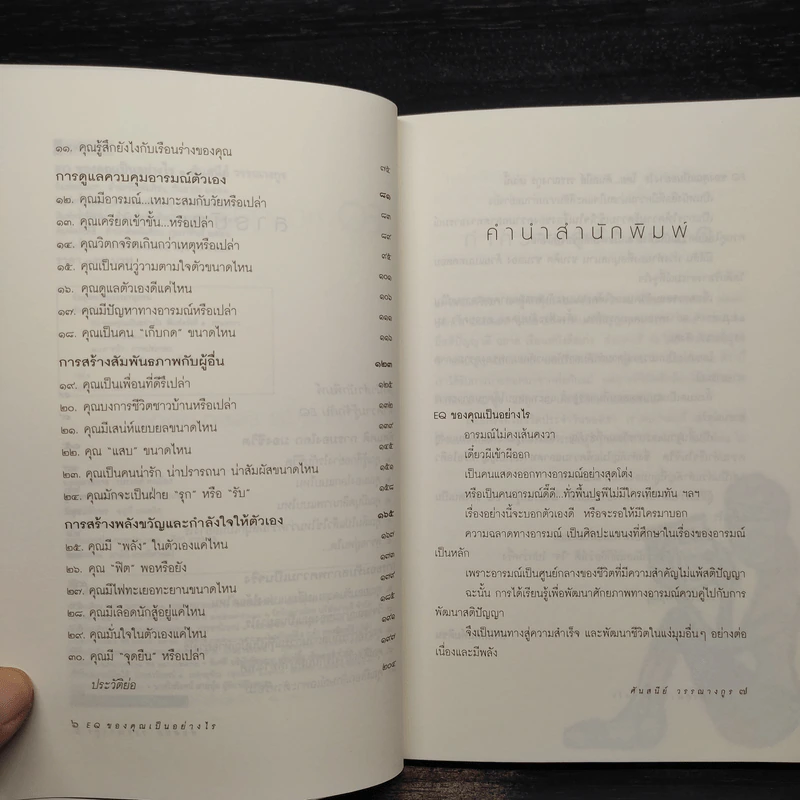 ๑๑. คุณรู้สึกยังไงกับเรือนร่างของคุณ ๗๕
การดูแลควบคุมอารมณ์ตัวเอง ๘๑
๑๒. คุณมีอารมณ์...เหมาะสมกับวัยหรือเปล่า ๘๓
๑๓. คุณเครียดเข้าขั้น...หรือเปล่า ๘๙
๑๔. คุณวิตกจริตเกินกว่าเหตุหรือเปล่า ๙๕
๑๕. คุณเป็นคนวู่วามตามใจตัวขนาดไหน ๑๐๑
๑๖. คุณดูแลตัวเองดีแค่ไหน ๑๐๖
๑๗. คุณมีปัญหาทางอารมณ์หรือเปล่า ๑๑๑
๑๘. คุณเป็นคน "เก็บกด" ขนาดไหน ๑๑๖
การสร้างสัมพันธภาพกับผู้อื่น ๑๒๓
๑๙. คุณเป็นเพื่อนที่ดีรึเปล่า ๑๒๕
๒๐. คุณบงการชีวิตชาวบ้านหรือเปล่า ๑๓๒
๒๑. คุณมีเสน่ห์แยบยลขนาดไหน ๑๓๙
๒๒. คุณ "แสบ" ขนาดไหน ๑๔๕
๒๓. คุณเป็นคนน่ารัก น่าปรารถนา น่าสัมผัสขนาดไหน ๑๕๑
๒๔. คุณมักจะเป็นฝ่าย "รุก" หรือ "รับ" ๑๕๘
การสร้างพลังขวัญและกำลังใจให้ตัวเอง ๑๖๕
๒๕. คุณมี "พลัง" ในตัวเองแค่ไหน ๑๖๗
๒๖. คุณ "ฟิต" พอหรือยัง ๑๗๓
๒๗. คุณมีไฟทะเยอทะยานขนาดไหน ๑๗๙
๒๘. คุณมีเลือดนักสู้อยู่แค่ไหน ๑๘๕
๒๙. คุณมั่นใจในตัวเองแค่ไหน ๑๙๑
๓๐. คุณมี "จุดยืน" หรือเปล่า ๑๙๗
ประวัติย่อ ๒๐๔
๖ EQ ของคุณเป็นอย่างไร
คำนำสำนักพิมพ์
EQ ของคุณเป็นอย่างไร
อารมณ์ไม่คงเส้นคงวา
เดี๋ยวผีเข้าผีออก
เป็นคนแสดงออกทางอารมณ์อย่างสุดโต่ง
หรือเป็นคนอารมณ์ดี๊ดี...ทั่วพื้นปฐพีไม่มีใครเทียมทัน ฯลฯ
เรื่องอย่างนี้จะบอกตัวเองดี หรือจะรอให้มีใครมาบอก
ความฉลาดทางอารมณ์ เป็นศิลปะแขนงที่ศึกษาในเรื่องของอารมณ์
เป็นหลัก
เพราะอารมณ์เป็นศูนย์กลางของชีวิตที่มีความสำคัญไม่แพ้สติปัญญา
ฉะนั้น การได้เรียนรู้เพื่อพัฒนาศักยภาพทางอารมณ์ควบคู่ไปกับการ
พัฒนาสติปัญญา
จึงเป็นหนทางสู่ความสำเร็จ และพัฒนาชีวิตในแง่มุมอื่นๆ อย่างต่อ
เนื่องและมีพลัง
ศันสนีย์ วรรณางกูร ๗